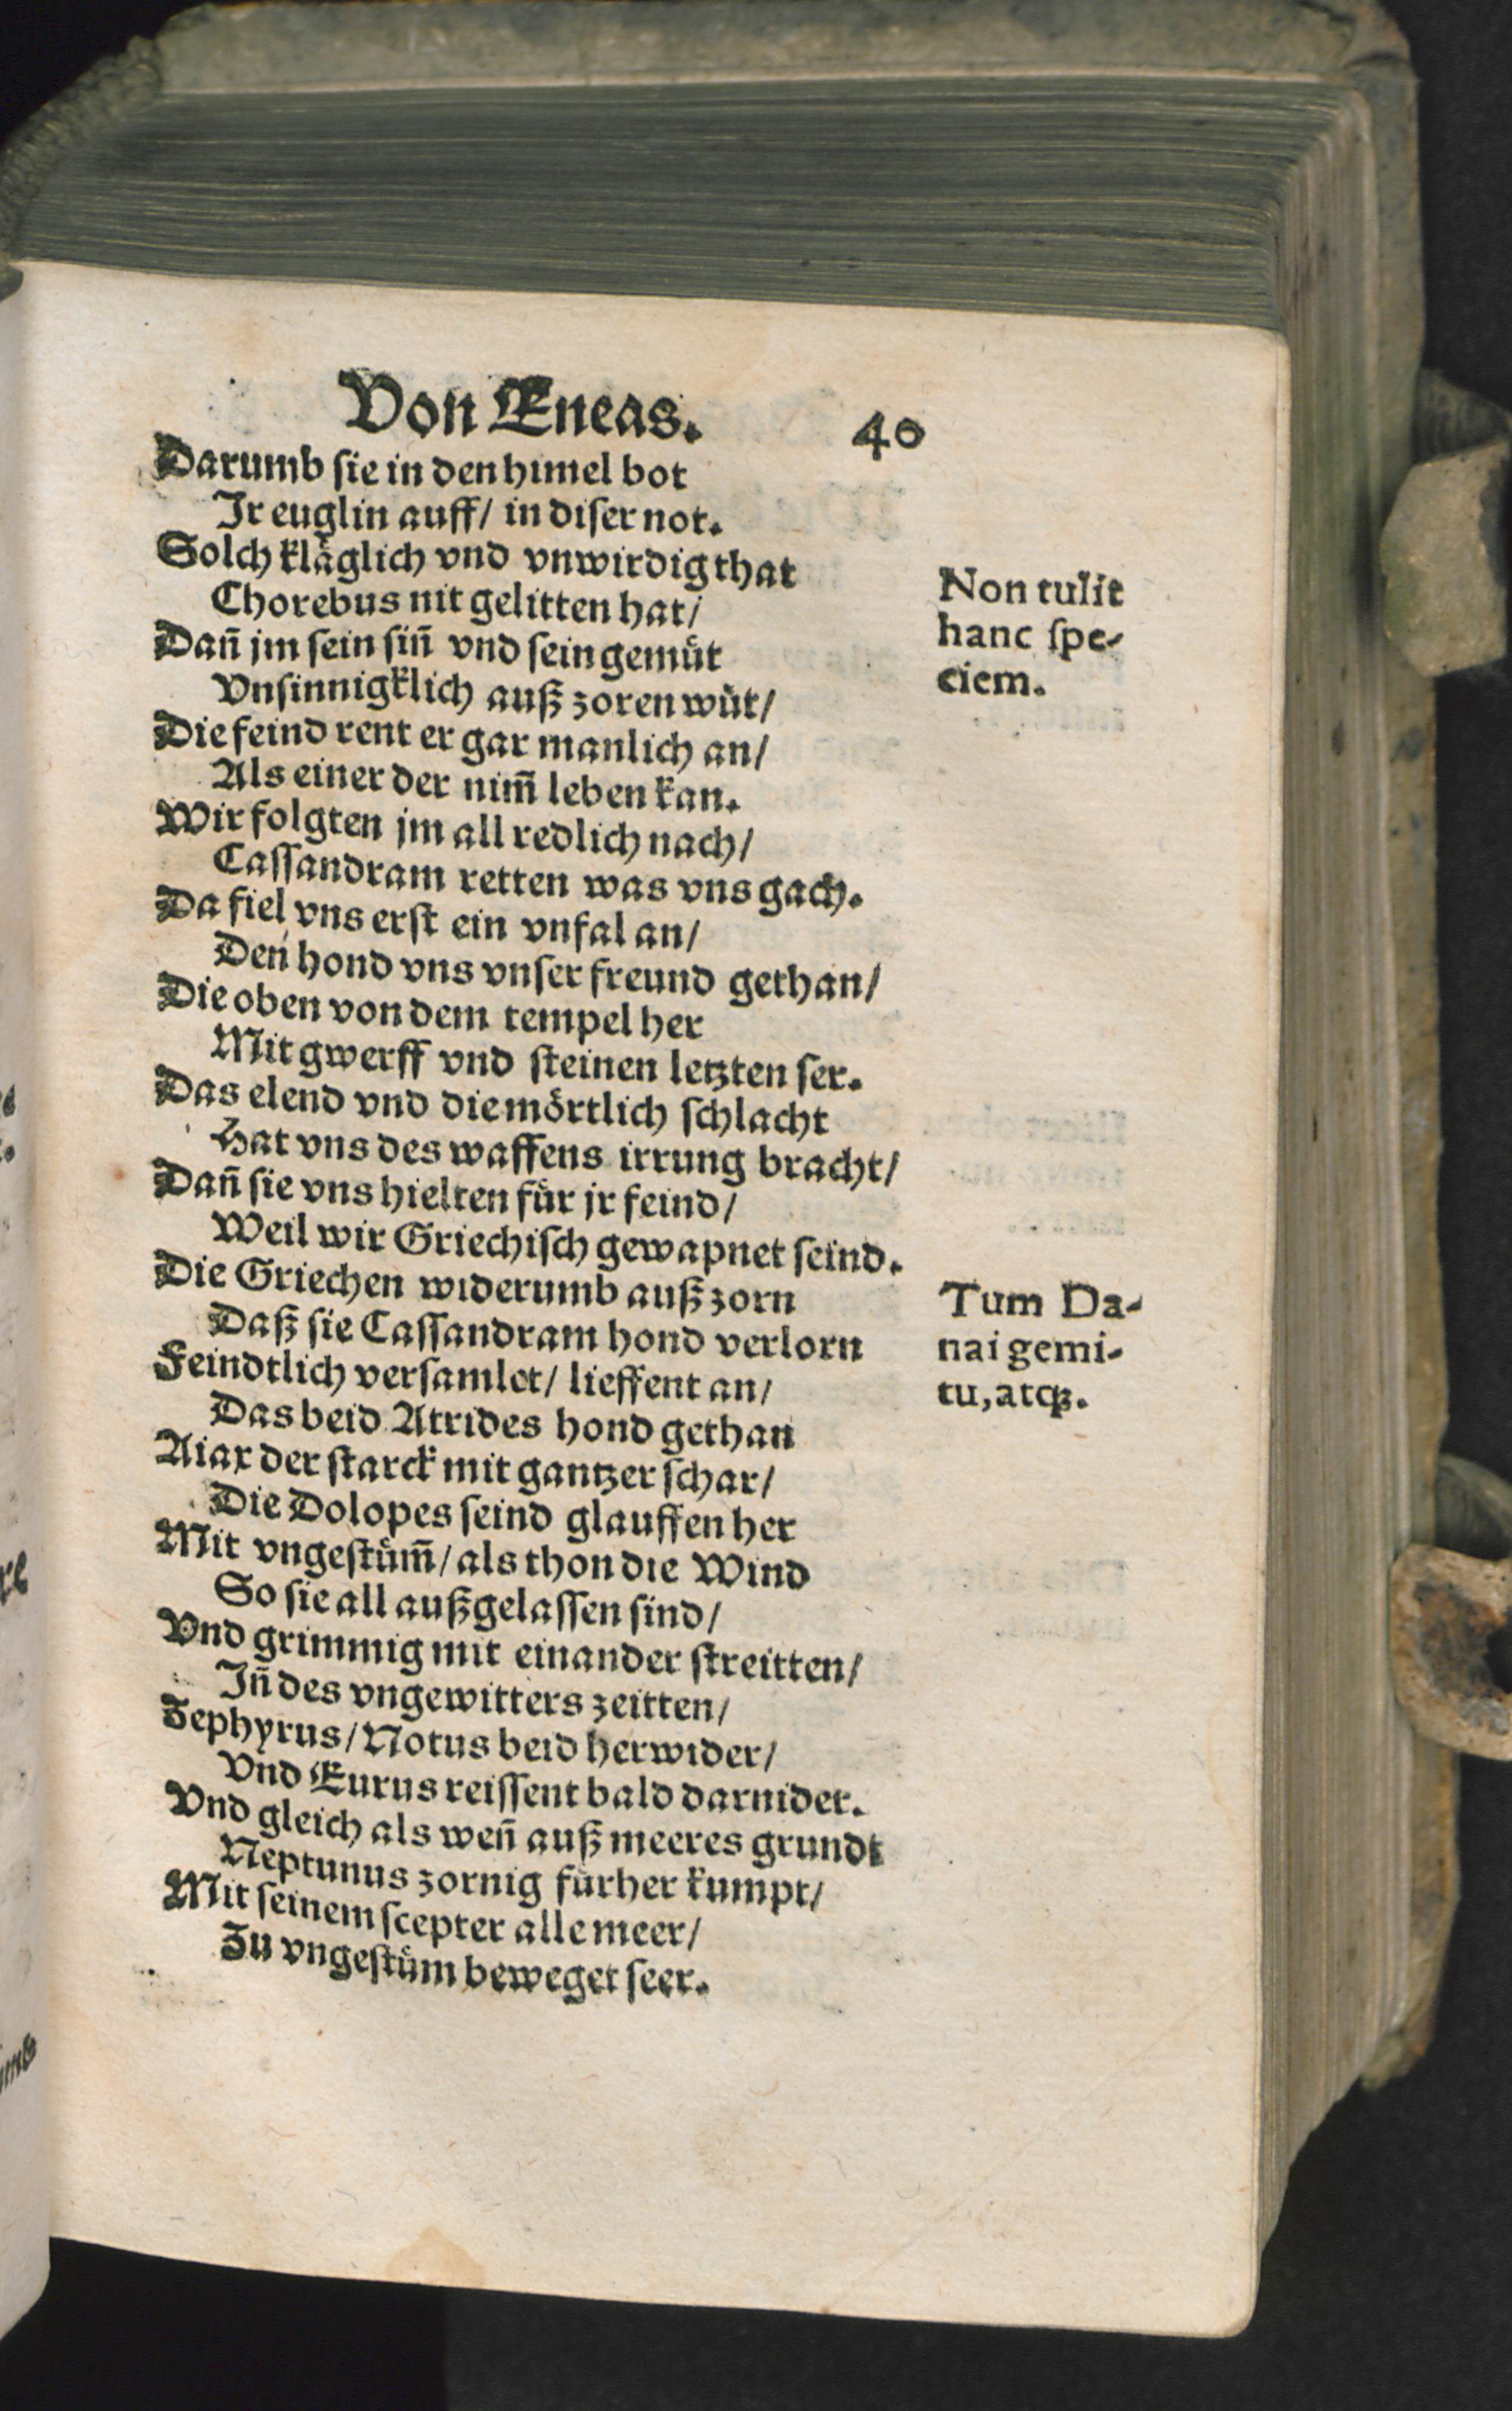 Von Eneas. 40
Darumb sie in den himel bot
Ir euglin auff/ in diser not.
Solch kläglich vnd vnwirdig that
Chorebus nit gelitten hat/
Dañ jm sein siñ vnd sein gemüt
Vnsinnigklich auß zoren wüt/
Die feind rent er gar manlich an/
Als einer der nim̃ leben kan.
Wir folgten jm all redlich nach/
Cassandram retten was vns gach.
Da fiel vns erst ein vnfal an/
Den hond vns vnser freund gethan/
Die oben von dem tempel her
Mit gwerff vnd steinen letzten ser.
Das elend vnd die mörtlich schlacht
Hat vns des waffens irrung bracht/
Dañ sie vns hielten für jr feind/
Weil wir Griechisch gewapnet seind.
Die Griechen widerumb auß zorn
Daß sie Cassandram hond verlorn
Feindtlich versamlet/ lieffent an/
Das beid Atrides hond gethan
Aiax der starck mit gantzer schar/
Die Dolopes seind glauffen her
Mit vngestüm̃/ als thon die Wind
So sie all außgelassen sind/
Vnd grimmig mit einander streitten/
Iñ des vngewitters zeitten/
Zephyrus/ Notus beid herwider/
Vnd Eurus reissent bald darnider.
Vnd gleich als weñ auß meeres grundt
Neptunus zornig fürher kumpt/
Mit seinem scepter alle meer/
Zů vngestüm beweget seer.
Non tulit
hanc spe-
ciem.
Tum Da-
nai gemi-
tu, atqꝫ.